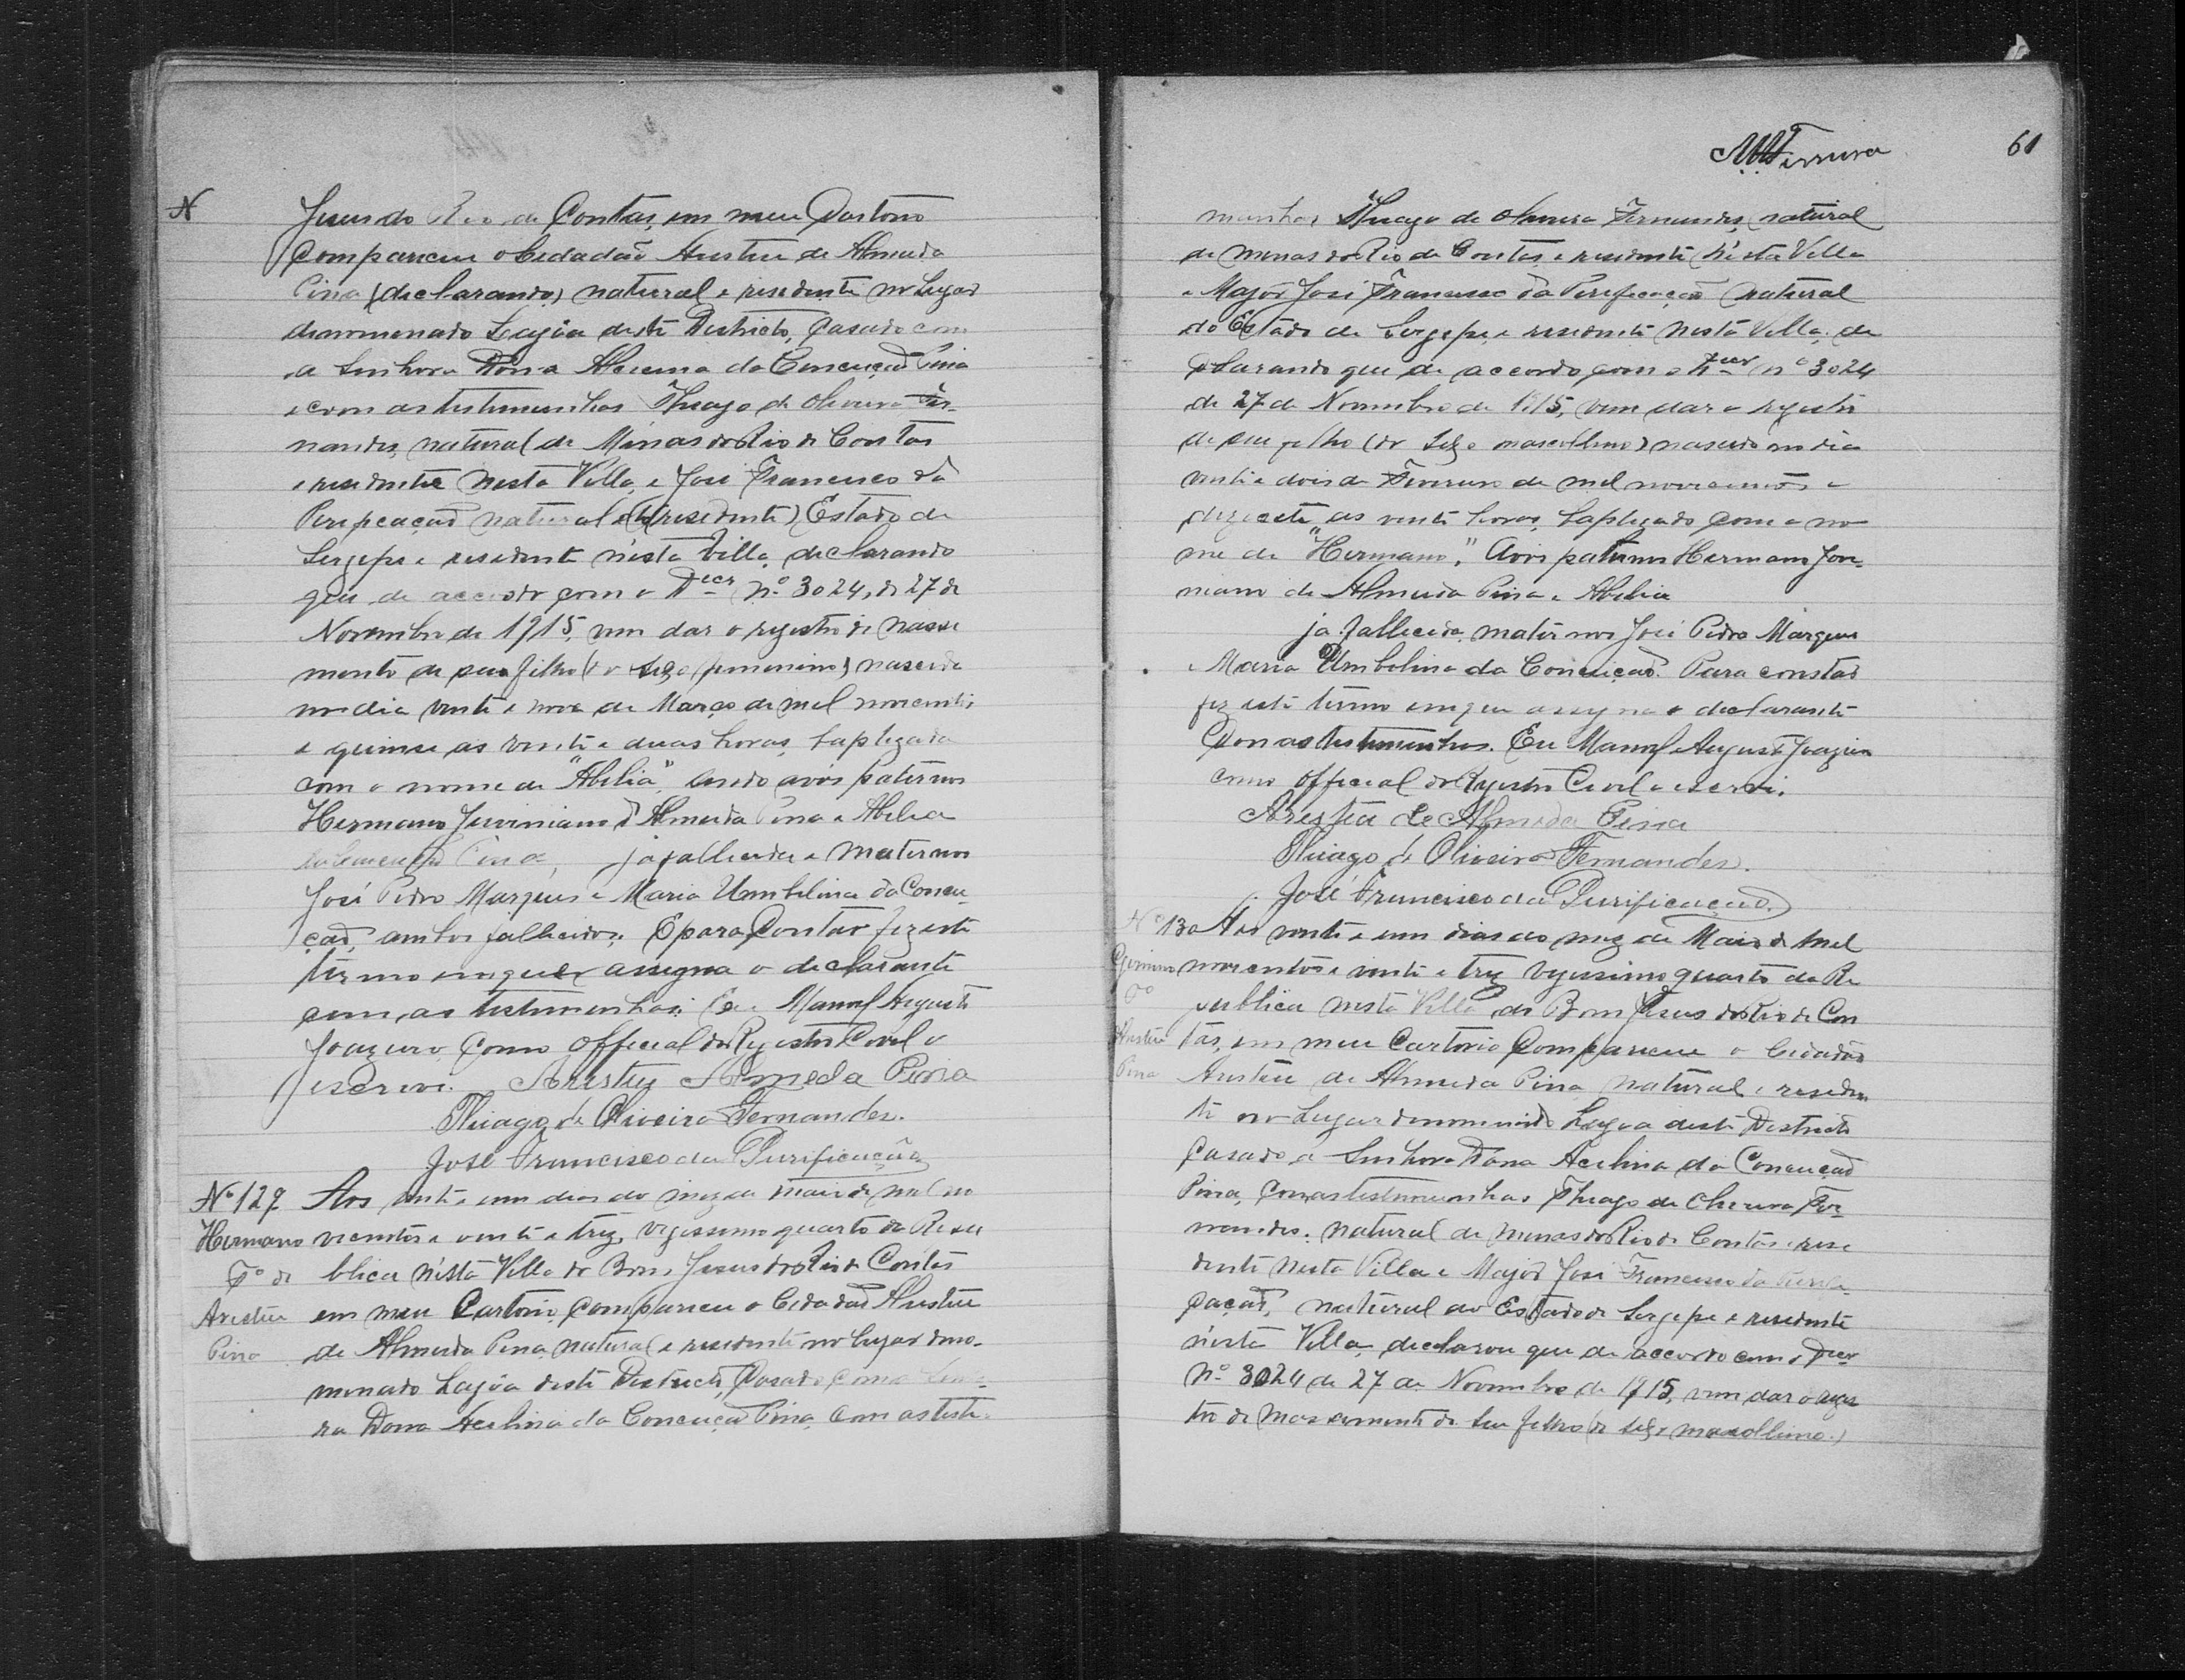 N
Jesus do Rio de Contas, em meu Cartorio
Compareceu o Cidadão Aristeu de Almeida
Pina (declarando) natural e residente no Lugar
denomenado Lagôa deste Districto, Casado com
a Senhora Dona Alcina da Conceição Pina
e com as testemunhas Thiago de Oliveira Fer-
nandes, natural de Minas do Rio de Contas
e residente nesta Villa, e José Francisco da
Perificação natural (residente) Estado de
Sergipe e residente nésta Villa, declarando
que de accordo com o Decr nº 3024, de 27 de
Novembro de 1915, vem dar o registro de nasci
mento de sua filha (do sexo femenino) nascida
no dia vinte e nove de Março de mil novecentos
e quinse as vinte e duas horas, baptizada
com o nome de "Abilia", sendo avós paternos
Hermano Juviniano d'Almeida Pina e Abilia
Pina, já fallecida e maternos
José Pedro Marques e Maria Umbilina da Concei-
ção, ambos fallecidos. E para Constar fiz este
termo em que assigna o declarante
com as testemunhas. Eu Manoel Augusto
Joazeiro Como Official do Registro Civil o
escrevi. Aristeu Almeda Pina
Thiago de Oliveira Fernandes.
José Francisco da Purificação
Nº 129 Aos vinte e um dias do mez de Maio de mil no
Hermano vecentos e vinte e trez, vigessimo quarto da Repu
Fº de blica nésta Villa do Bom Jesus do Rio de Contas
Aristeu em meu Cartorio, Compareceu o Cidadão Aristeu
Pina de Almeida Pina, natural e residente no lugar deno-
menado Lagôa deste Districto, Casado com a
ra Dona Acelina da Conceição Pina, com as teste-
MMFerreira
61
munhas Thiago de Oliveira Fernandes, natural
de Minas do Rio de Contas e residente nésta Villa
e Major José Francisco da Perificação natural
do Estado de Sergipe, e residente nesta Villa, de
clarando que de accordo com o Decr nº 3024
de 27 de Novembro de 1915, vem dar o registro
de seu filho (do sexo mascollino) nascido no dia
vinte e dois de Fevereiro de mil novecentos e
dezecete, as vinte horas, baptizado com o no
me de "Hermano". Avós paternos Hermano Jove
niano de Almeida Pina e Abilia
já fallecida, maternos José Pedro Marques
e Maria Umbolina da Conceição. Para constar
fiz este termo em que assigna o declarante
Com as testemunhas. Eu Manoel Augusto Joazeiro
como Official do Registro Civil o escrevi.
Aresteu de Almeda Pina
Thiago de Oliveira Fernandes.
José Francisco da Purificação
Nº 130 Aos vinte e um dias do mez de Maio de mil
novecentos e vinte e trez vigessimo quarto da Re
Fº publica nesta Villa do Bom Jesus do Rio de Con
Aristeu tas, em meu Cartorio Compareceu o Cidadão
Pina Aristeu de Almeida Pina, natural e residen
te no Lugar denomenado Lagôa deste Districto
Casado a Senhora Dona Acelina da Conceição
Pina, com as testemunhas Thiago de Oliveira Fer-
nandes, natural de Minas do Rio de Contas e resi
dente nesta Villa e Major José Francisco da Purifi-
cação, natural do Estado de Sergipe e residente
nésta Villa, declarou que de accordo com o Decr
Nº 3024 de 27 de Novembro de 1915, vem dar o regis
tro de nascemento de seu filho (do sexo mascollino.)